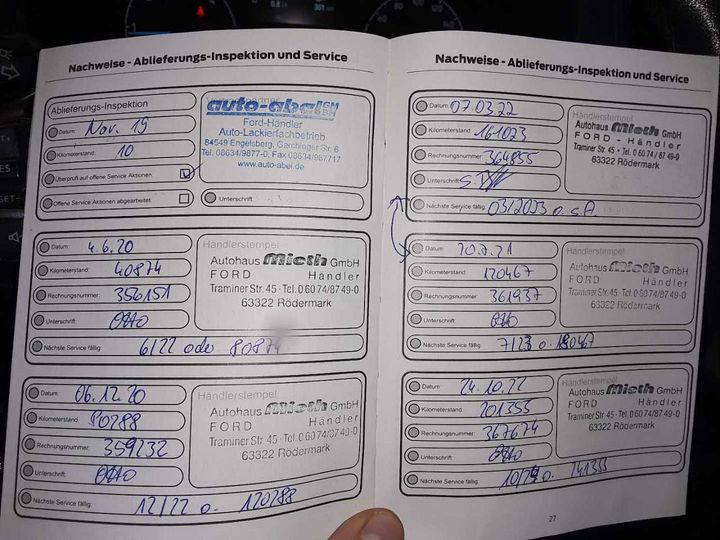 Nachweise - Ablieferungs-Inspektion und Service
Ablieferungs-Inspektion
Datum: Nov. 19
Kilometerstand: 10
Überprüft auf offene Service Aktionen.
Offene Service Aktionen abgearbeitet
auto-abel GmbH
Ford-Händler
Auto-Lackierfachbetrieb
84549 Engelsberg, Garchinger Str. 6
Tel. 08634/9877-0, Fax 08634/987717
www.auto-abel.de
Unterschrift
Datum: 4.6.20
Kilometerstand: 40874
Rechnungsnummer: 356151
Unterschrift: Otto
Nächste Service fällig: 6/22 ode 80874
Händlerstempel
Autohaus Mieth GmbH
FORD Händler
Traminer Str. 45 · Tel. 0 60 74/87 49-0
63322 Rödermark
Datum: 06.12.20
Kilometerstand: 80288
Rechnungsnummer: 359232
Unterschrift: Otto
Nächste Service fällig: 12/22 o. 120288
Händlerstempel
Autohaus Mieth GmbH
FORD Händler
Traminer Str. 45 · Tel. 0 60 74/87 49-0
63322 Rödermark
Nachweise - Ablieferungs-Inspektion und Service
Datum: 07.03.22
Kilometerstand: 161023
Rechnungsnummer: 364855
Unterschrift:
Nächste Service fällig: 03/2023 o. s.A.
Händlerstempel
Autohaus Mieth GmbH
FORD - Händler
Traminer Str. 45 · Tel. 0 60 74 / 87 49-0
63322 Rödermark
Datum: 20.7.21
Kilometerstand: 120467
Rechnungsnummer: 361937
Unterschrift: Otto
Nächste Service fällig: 7/23 o. 180467
Händlerstempel
Autohaus Mieth GmbH
FORD Händler
Traminer Str. 45 · Tel. 0 60 74/87 49-0
63322 Rödermark
Datum: 24.10.22
Kilometerstand: 201355
Rechnungsnummer: 367674
Unterschrift: Otto
Nächste Service fällig: 10/24 o. 241355
Händlerstempel
Autohaus Mieth GmbH
FORD Händler
Traminer Str. 45 · Tel. 0 60 74/87 49-0
63322 Rödermark
27